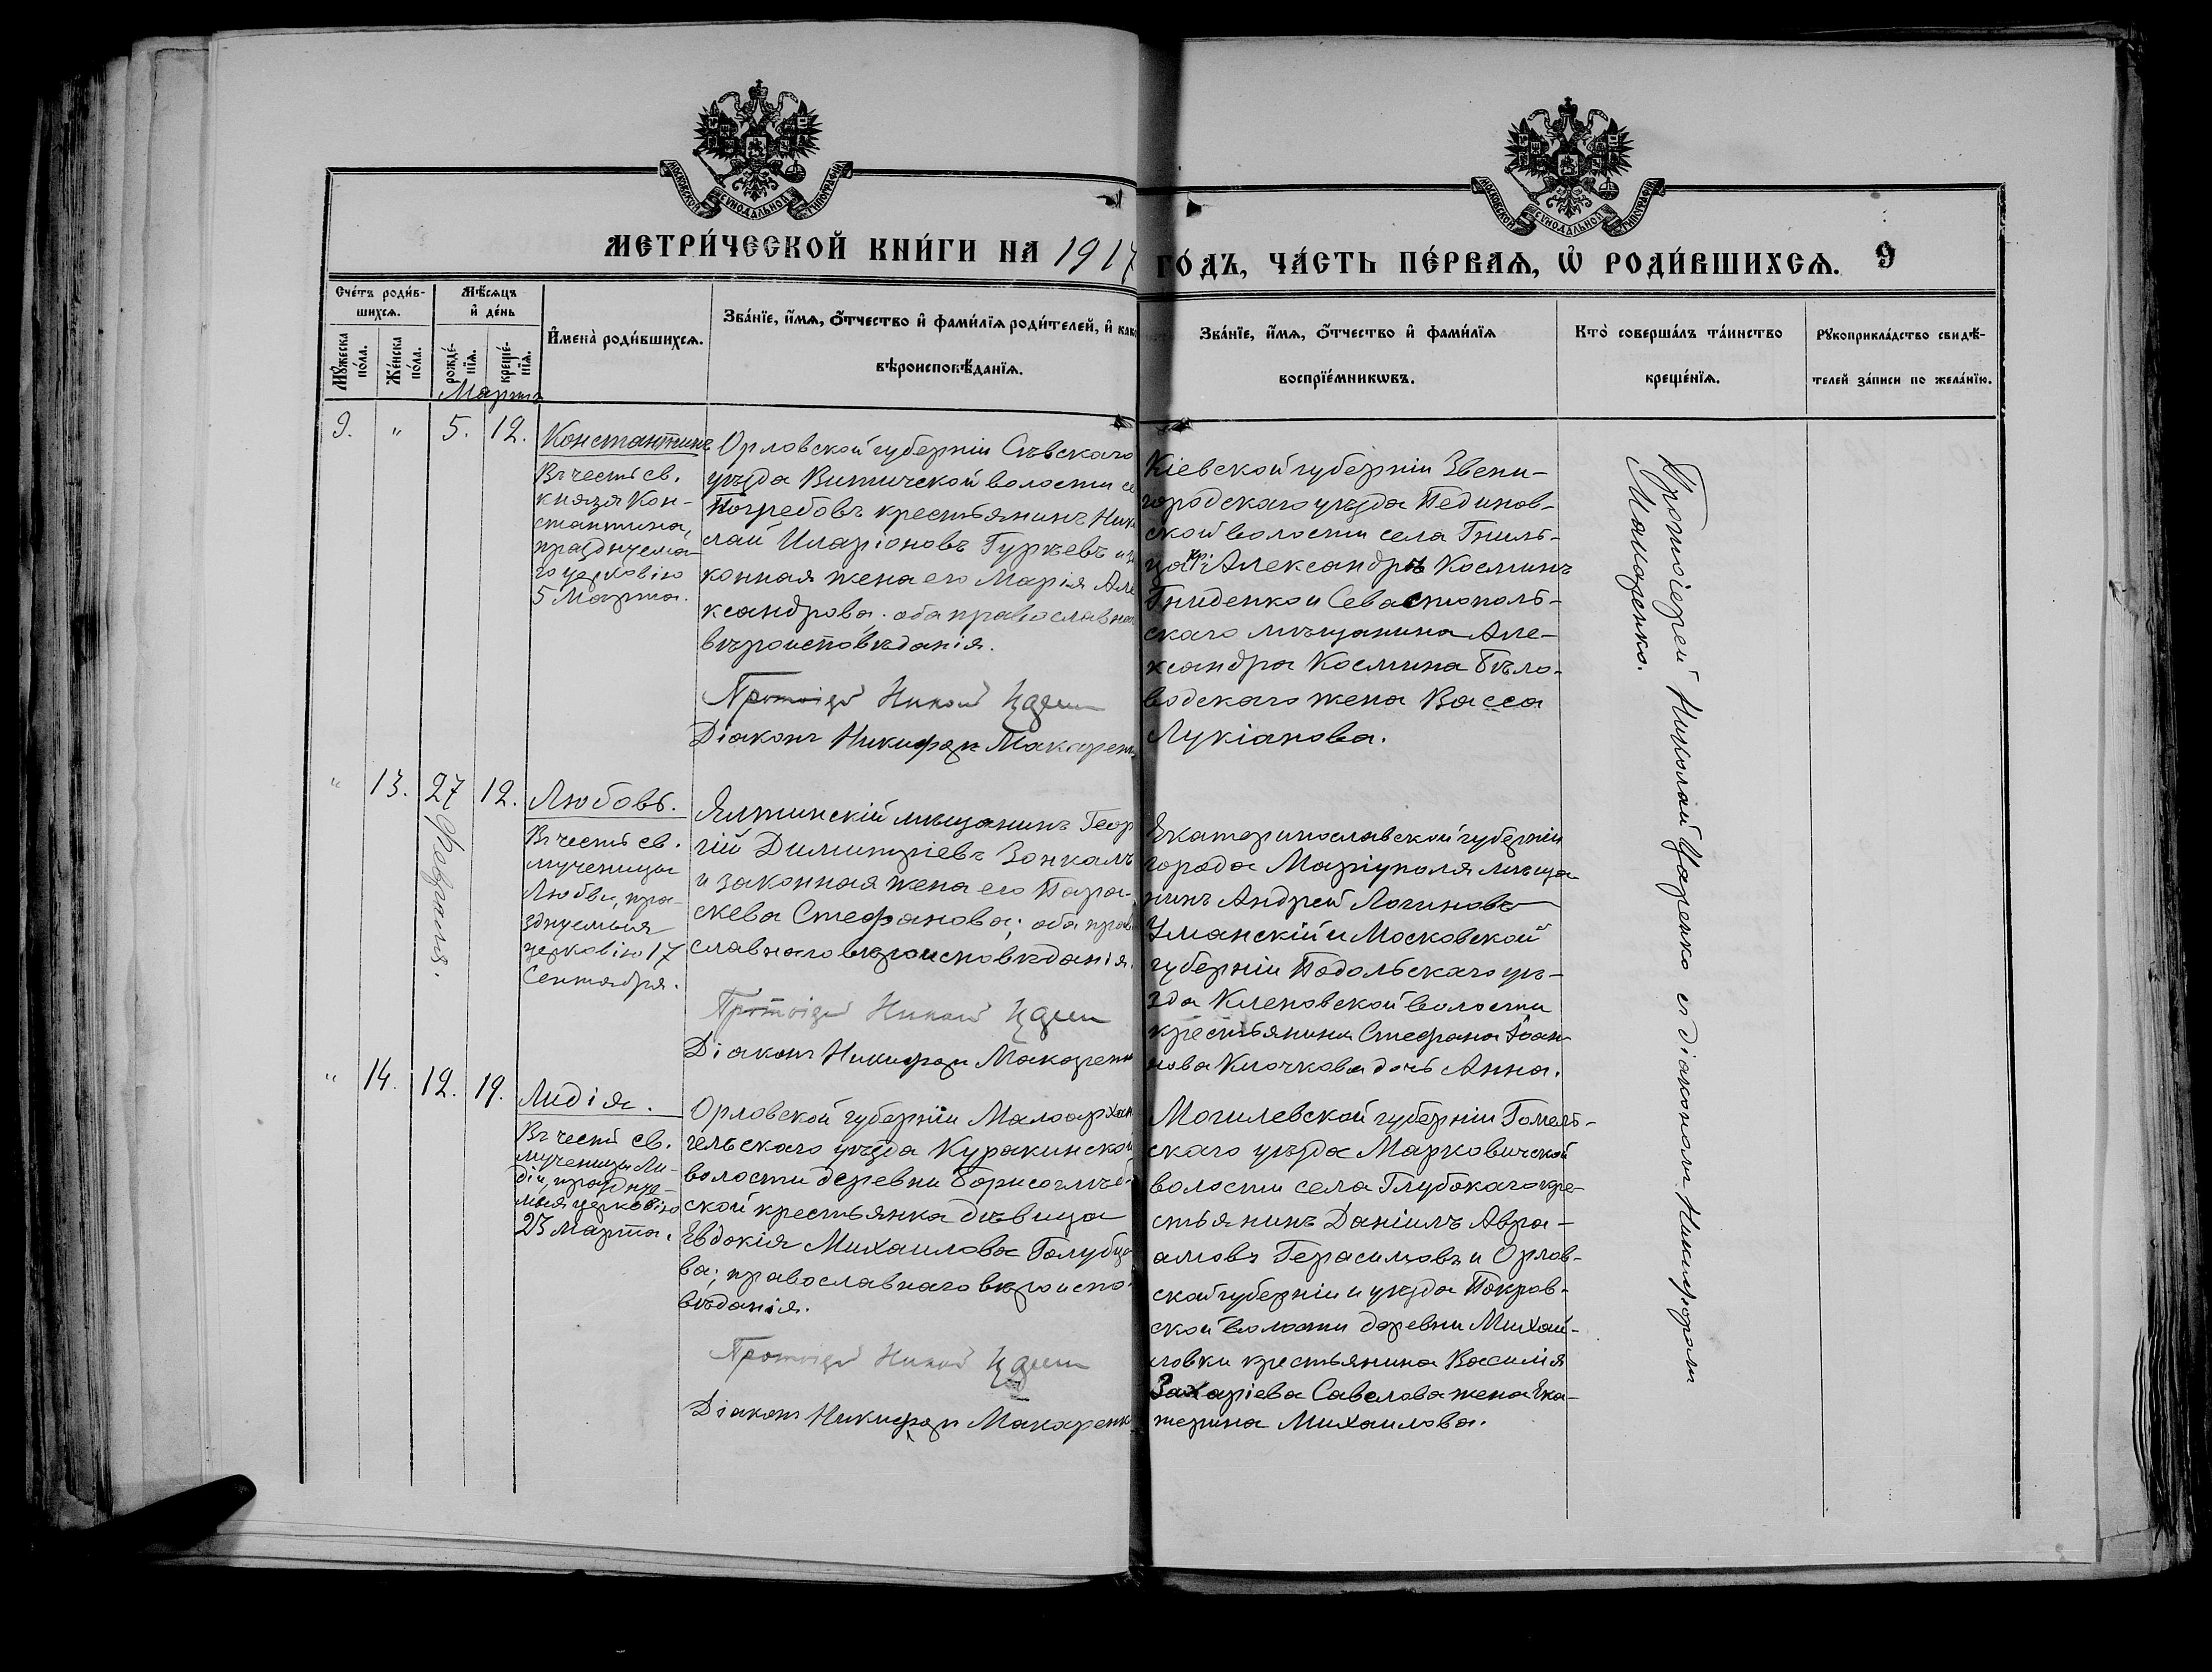 МОСКОВСКОЙ СѴНОДАЛЬНОЙ ТИПОГРАФІИ
МОСКОВСКОЙ СѴНОДАЛЬНОЙ ТИПОГРАФІИ
МЕТРИ́ЧЕСКОЙ КНИ́ГИ НА 1917
ГО́ДЪ, ЧА́СТЬ ПЕ́РВАЯ, Ѡ РОДИ́ВШИХСѦ. 9
Сче́тъ роди́в-
шихсѧ.
Мѣ́сѧцъ
и҆ де́нь
Мꙋ́жеска
по́ла.
Же́нска
по́ла.
рожде́-
нїѧ.
креще́-
нїѧ.
И҆мена̀ роди́вшихсѧ.
Зва́нїе, и҆́мѧ, ѻ҆́тчество и҆ фами́лїѧ роди́телей, и҆ како
вѣроисповѣ́данїѧ.
Зва́нїе, и҆́мѧ, ѻ҆́тчество и҆ фами́лїѧ
воспрїе́мникѡвъ.
Кто̀ соверша́лъ та́инство
креще́нїѧ.
Рꙋкоприкла́дство свидѣ́-
телей за́писи по жела́нїю.
Мартъ
9. " 5. 12.
Константинъ
Въ честь св.
князя Кон-
стантина,
празднуема-
го церковію
5 Марта.
Орловской губерніи Сѣвскаго
уѣзда Витичской волости се
Погребовъ крестьянинъ Нико
лай Иларіоновъ Гуржевъ и за
конная жена его Марія Але
ксандрова; оба православнаго
вѣроисповѣданія.
Протоіерей Николай Царенко
Діаконъ Никифоръ Макаренко
Кіевской губерніи Звени-
городскаго уѣзда Пединов-
ской волости села Гниль-
ца кр. Александръ Косминъ
Гниденко и Севастополь-
скаго мѣщанина Але-
ксандра Космина Бѣло-
водскаго жена Васса
Лукіанова.
Протоіерей Николай Царенко съ діакономъ Никифоромъ
Макаренко.
" 13. 27 Февраля. 12.
Любовь.
Въ честь св.
мученицы
Любви, пра-
зднуемыя
церковію 17
Сентября.
Ялтинскій мѣщанинъ Геор
гій Димитріевъ Зонкалъ
и законная жена его Пара-
скева Стефанова; оба право
славнаго вѣроисповѣданія.
Протоіерей Николай Царенко
Діаконъ Никифоръ Макаренко
Екатеринославской губерніи
города Маріуполя мѣща
нинъ Андрей Логиновъ
Уманскій и Московской
губерніи Подольскаго уѣ-
зда Кленовской волости
крестьянина Стефана Іоан-
нова Клочкова дочь Анна.
" 14. 12. 19.
Лидія.
Въ честь св.
мученицы Ли-
діи, праздну-
емыя церковію
23 Марта.
Орловской губерніи Малоархан
гельскаго уѣзда Куракинской
волости деревни Борисоглѣб-
ской крестьянка дѣвица
Евдокія Михаилова Голубцо
ва; православнаго вѣроиспо-
вѣданія.
Протоіерей Николай Царенко
Діаконъ Никифоръ Макаренк
Могилевской губерніи Гомель-
скаго уѣзда Марковичской
волости села Глубокаго кре-
стьянинъ Даніилъ Авра-
амовъ Герасимовъ и Орлов-
ской губерніи и уѣзда Покров-
ской волости деревни Михай-
ловки крестьянина Василія
Захаріева Савелова жена Ека-
терина Михаилова.